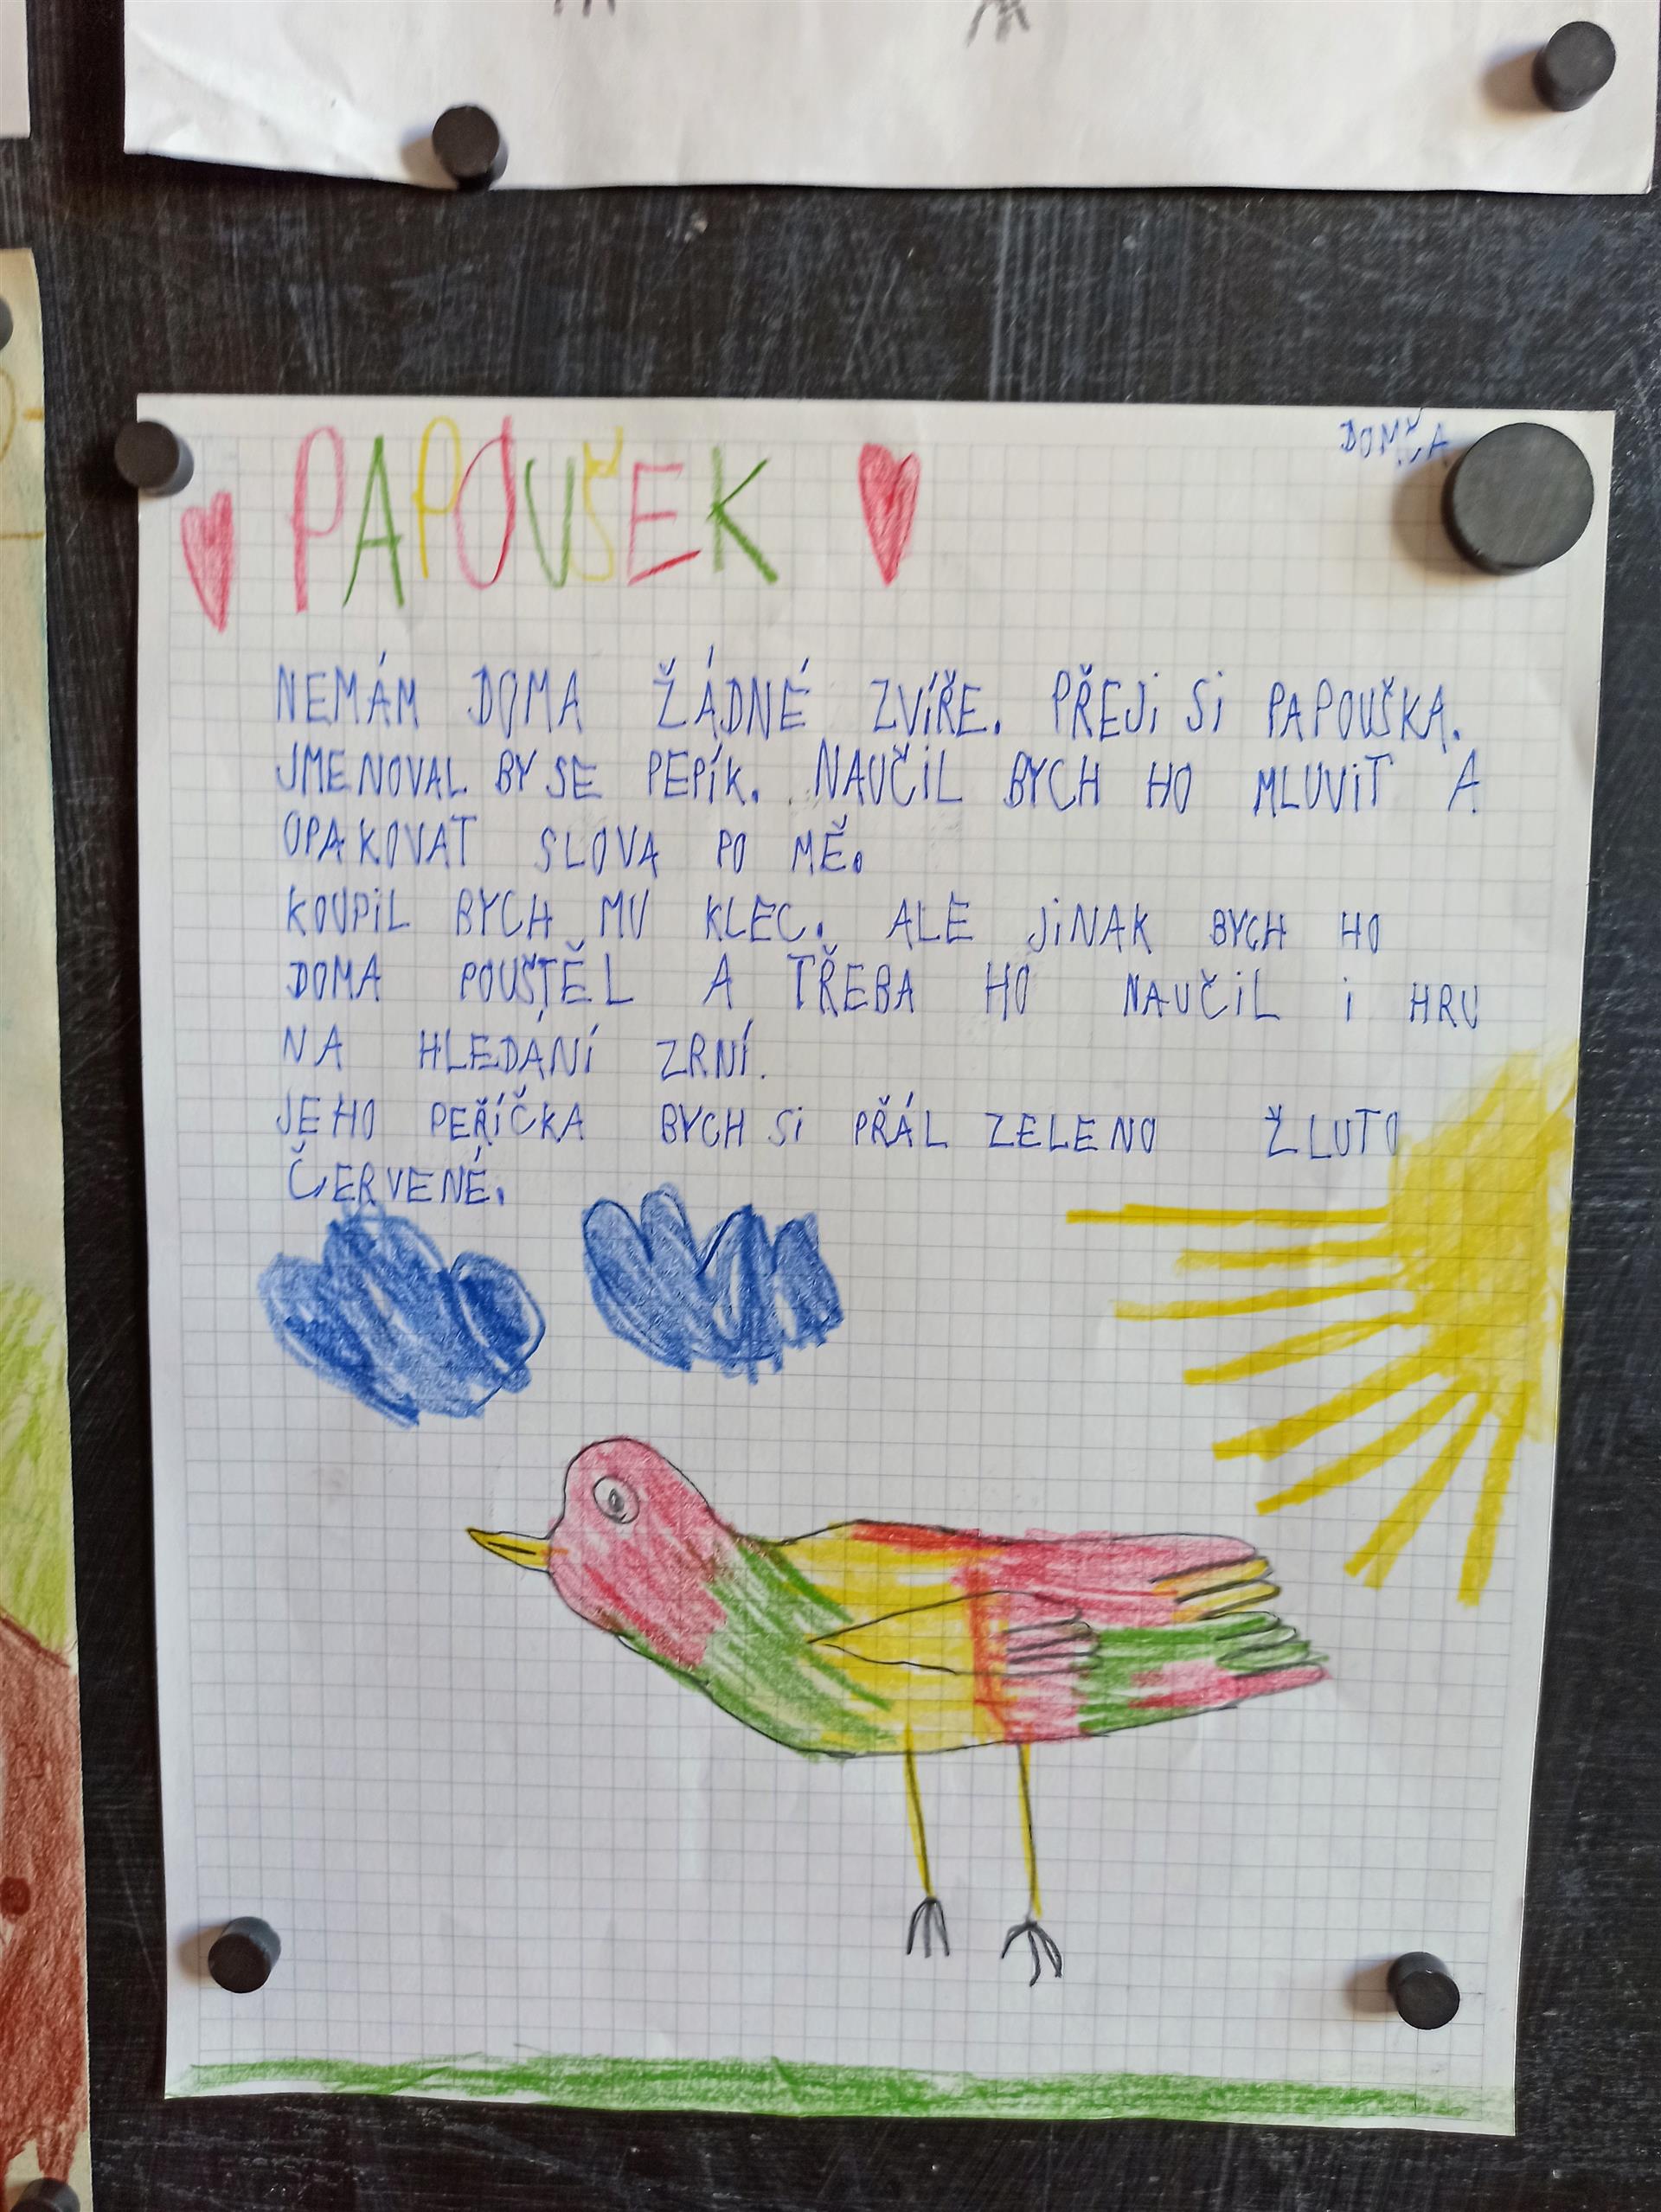 DOMČA
PAPOUŠEK
NEMÁM DOMA ŽÁDNÉ ZVÍŘE. PŘEJI SI PAPOUŠKA.
JMENOVAL BY SE PEPÍK. NAUČIL BYCH HO MLUVIT A
OPAKOVAT SLOVA PO MĚ.
KOUPIL BYCH MU KLEC. ALE JINAK BYCH HO
DOMA POUŠTĚL A TŘEBA HO NAUČIL I HRU
NA HLEDÁNÍ ZRNÍ.
JEHO PEŘÍČKA BYCH SI PŘÁL ZELENO ŽLUTO
ČERVENÉ.